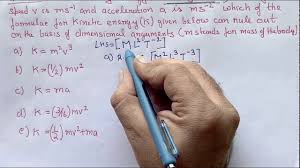 speed v is ms⁻¹ and acceleration a is ms⁻² which of the
formulae for Kinetic energy (K) given below can rule out
on the basis of dimensional arguments (m stands for mass of the body)
a) K = m²v³
b) K = (1/2) mv²
c) K = ma
d) K = (3/16) mv²
e) K = (1/2) mv² + ma
LHS = [M L² T⁻²]
a) R [M² L³ T⁻³]